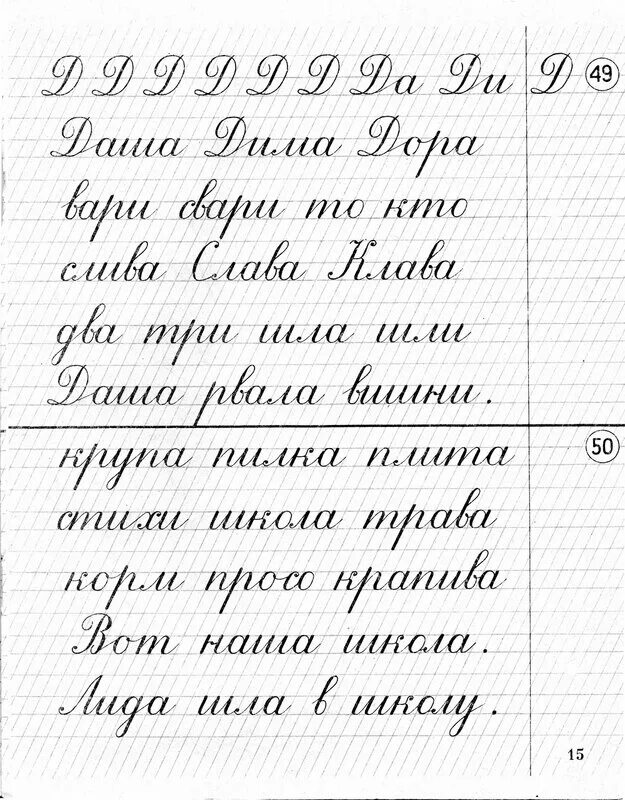 Д Д Д Д Д Д Да Ди Д 49
Даша Дима Дора
вари свари то кто
слива Слава Клава
два три шла шли
Даша рвала вишни.
крупа пилка плита 50
стихи школа трава
корм просо крапива
Вот наша школа.
Лида шла в школу.
15